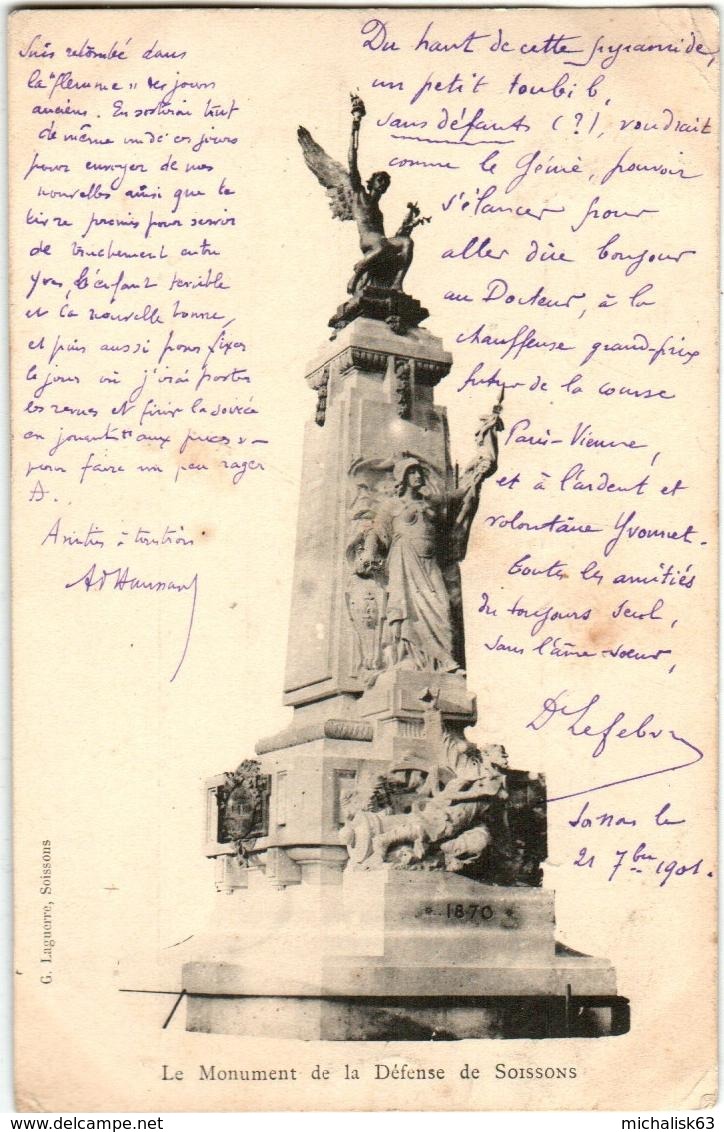 Suis retombé dans
la "flemme" des jours
anciens. En sortirai tout
de même un de ces jours
pour envoyer de mes
nouvelles ainsi que te
livre promis pour servir
de truchement entre
Yves, l'enfant terrible
et sa nouvelle bonne,
et puis aussi pour fixer
le jour où j'irai porter
les revues et finir la soirée
en jouant "aux puces" -
pour faire un peu rager
A.
Amitiés à tous trois
Du haut de cette pyramide,
un petit toubib,
sans défauts (?), voudrait
comme le Génie, pouvoir
s'élancer pour
aller dire bonjour
au Docteur, à la
chauffeuse grand-prix
futur de la course
Paris-Vienne,
et à l'ardent et
volontaire Yvonnet.
Toutes les amitiés
du toujours seul,
sans l'âme-soeur,
Dr Lefebvre
le
21 7bre 1901.
* 1870 *
G. Laguerre, Soissons
Le Monument de la Défense de SOISSONS
michalisk63